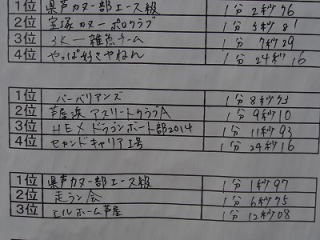 1位 県芦カヌー部エース級 1分2秒76
2位 宝塚カヌーポロクラブ 1分5秒81
3位 チーム 1分7秒29
4位 やっぱ好きやねん 1分24秒16
1位 バーバリアンズ 1分8秒53
2位 芦屋浜アスリートクラブA 1分9秒10
3位 HEXドラゴンボート部2014 1分11秒93
4位 セカンドキャリア1号 1分24秒16
1位 県芦カヌー部エース級 1分1秒97
2位 走ラン会 1分6秒75
3位 ヒルホーム芦屋 1分12秒08